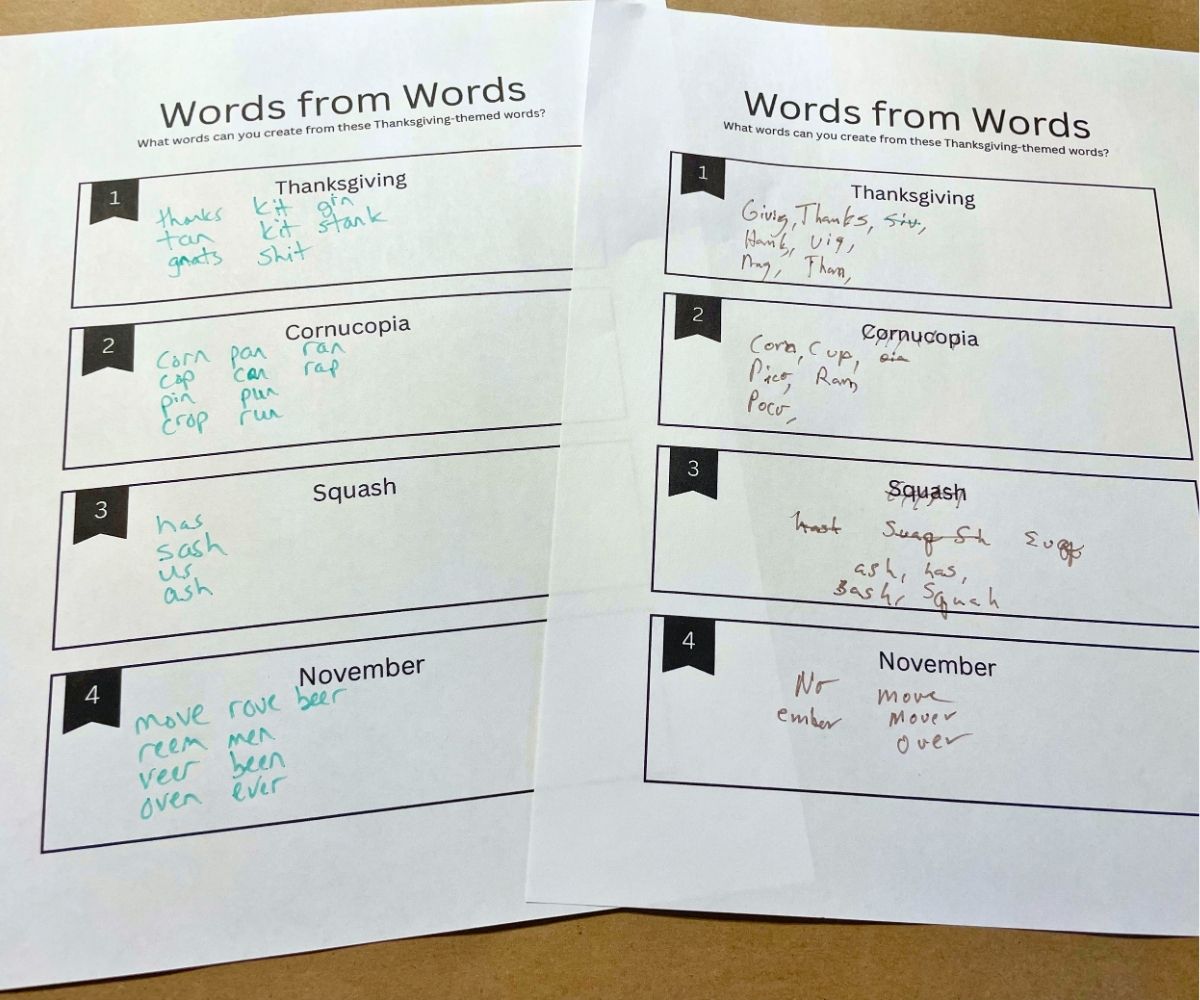 Words from Words
What words can you create from these Thanksgiving-themed words?
1
Thanksgiving
thanks kit gin
tan kit stank
gnats shit
2
Cornucopia
corn pan ran
cop can rap
pin pun
crop run
3
Squash
has
sash
us
ash
4
November
move rove beer
reem men
veer been
oven ever
Words from Words
What words can you create from these Thanksgiving-themed words?
1
Thanksgiving
Givig, Thanks,
Hank, vig,
Nag, Than,
2
Cornucopia
Corn, Cup,
Pico, Ran,
Poco,
3
Squash
hast
ash, has,
Sash, Squah
4
November
No move
ember Mover
over